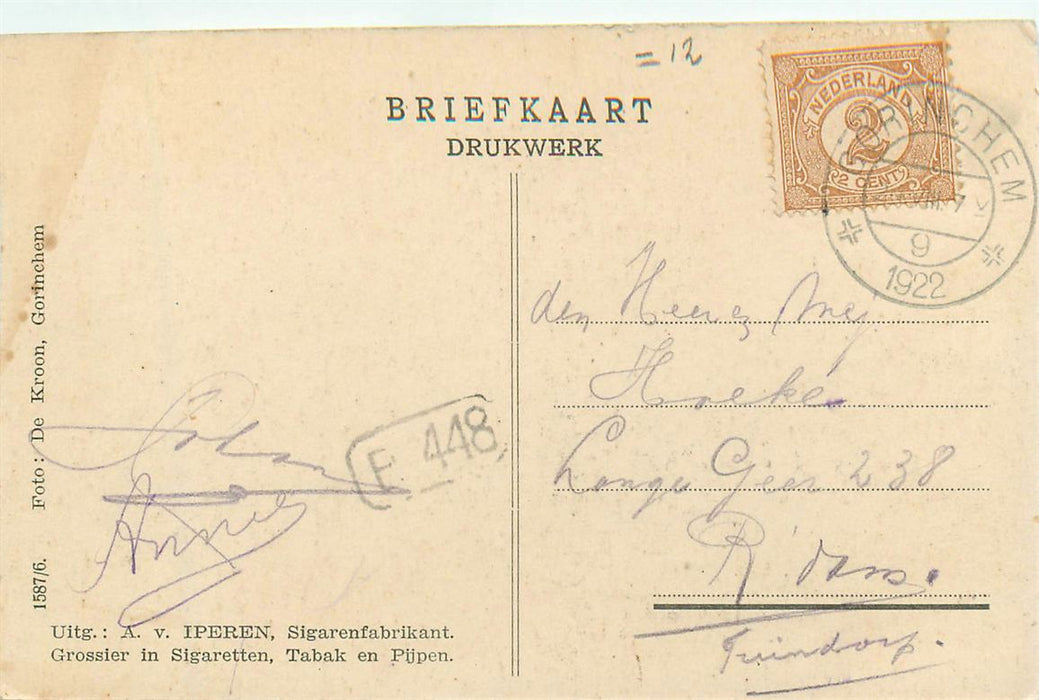 = 12
BRIEFKAART
DRUKWERK
NEDERLAND
2
2 CENT
GORINCHEM
7
9
1922
den Heer
Hoeke
Lange Geer 238
R'dam.
Tuindorp.
Annie
F 448
1587/6. Foto: De Kroon, Gorinchem
Uitg.: A. v. IPEREN, Sigarenfabrikant.
Grossier in Sigaretten, Tabak en Pijpen.